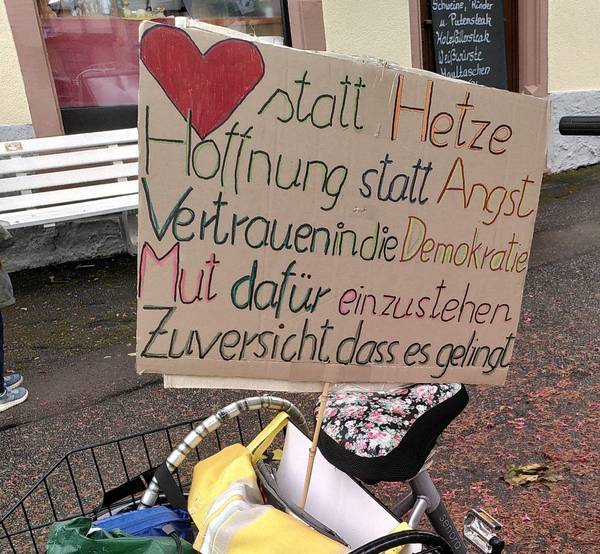 Schweine, Rinder
u Putensteak
Holzfällersteak
Weißwürste
Maultaschen
statt Hetze
Hoffnung statt Angst
Vertrauen in die Demokratie
Mut dafür einzustehen
Zuversicht dass es gelingt